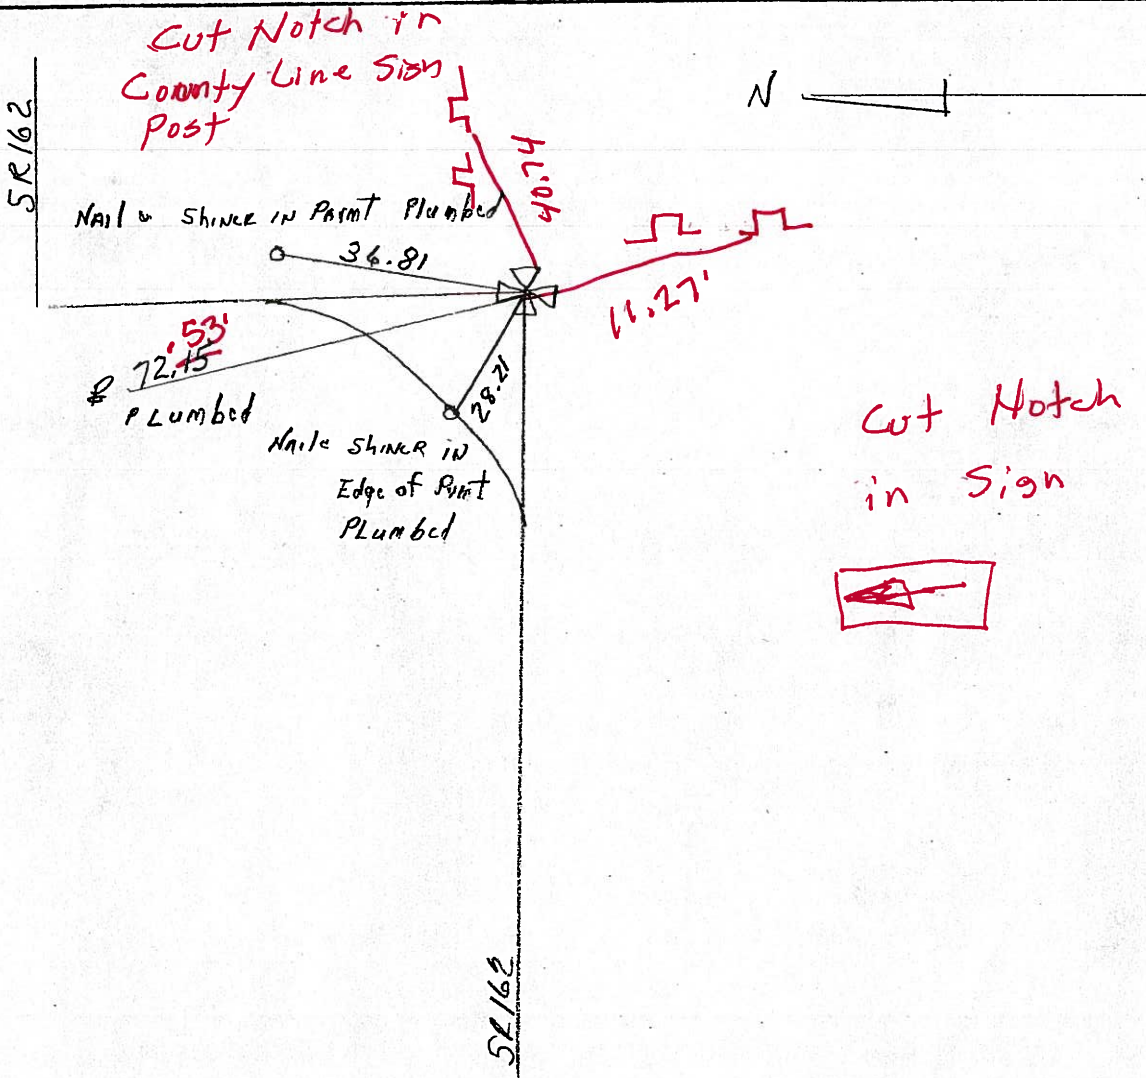 Cut Notch in
County Line Sign
Post
N
SR162
40.74
Nail & Shiner in Pavmt Plumbed
36.81
11.27'
.53'
72.15
Plumbed
28.21
Nail & Shiner in
Edge of Pvmt
Plumbed
Cut Notch
in Sign
SR162